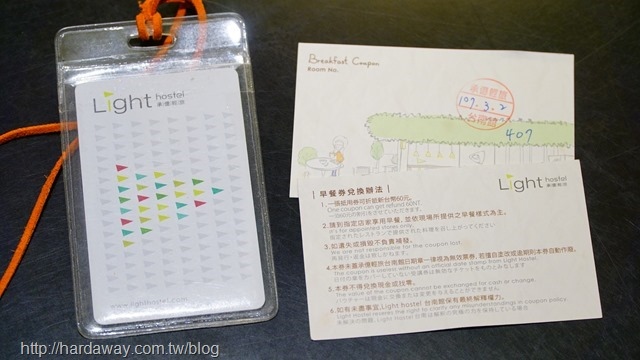 Light hostel
承億輕旅
www.lighthostel.com
Breakfast Coupon
Room No.
承億輕旅
107.3.2
台南館
407
Light hostel
承億輕旅
早餐券兌換辦法
1.一張抵用券可折抵新台幣60元。
One coupon can get refund 60NT.
2.請到指定店家享用早餐,並依現場所提供之早餐樣式為主。
It's for appointed stores only.
3.如遺失或損毀不負責補發。
We are not responsible for the coupon lost.
4.本券未蓋承億輕旅台南館日期章一律視為無效票券,若擅自塗改或逾期則本券自動作廢。
The coupon is useless without an official date stamp from Light Hostel.
5.本券不得兌換現金或找零。
The value of the coupon cannot be exchanged for cash or change.
6.如有未盡事宜,Light hostel 台南館保有最終解釋權力。
Light Hostel reserves the right to clarify any misunderstandings in coupon policy.
http://hardaway.com.tw/blog